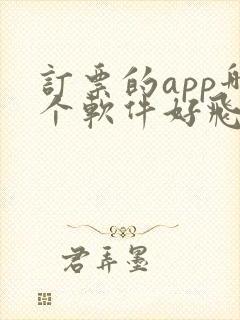 訂票的app
个軟件好飛
君弄墨